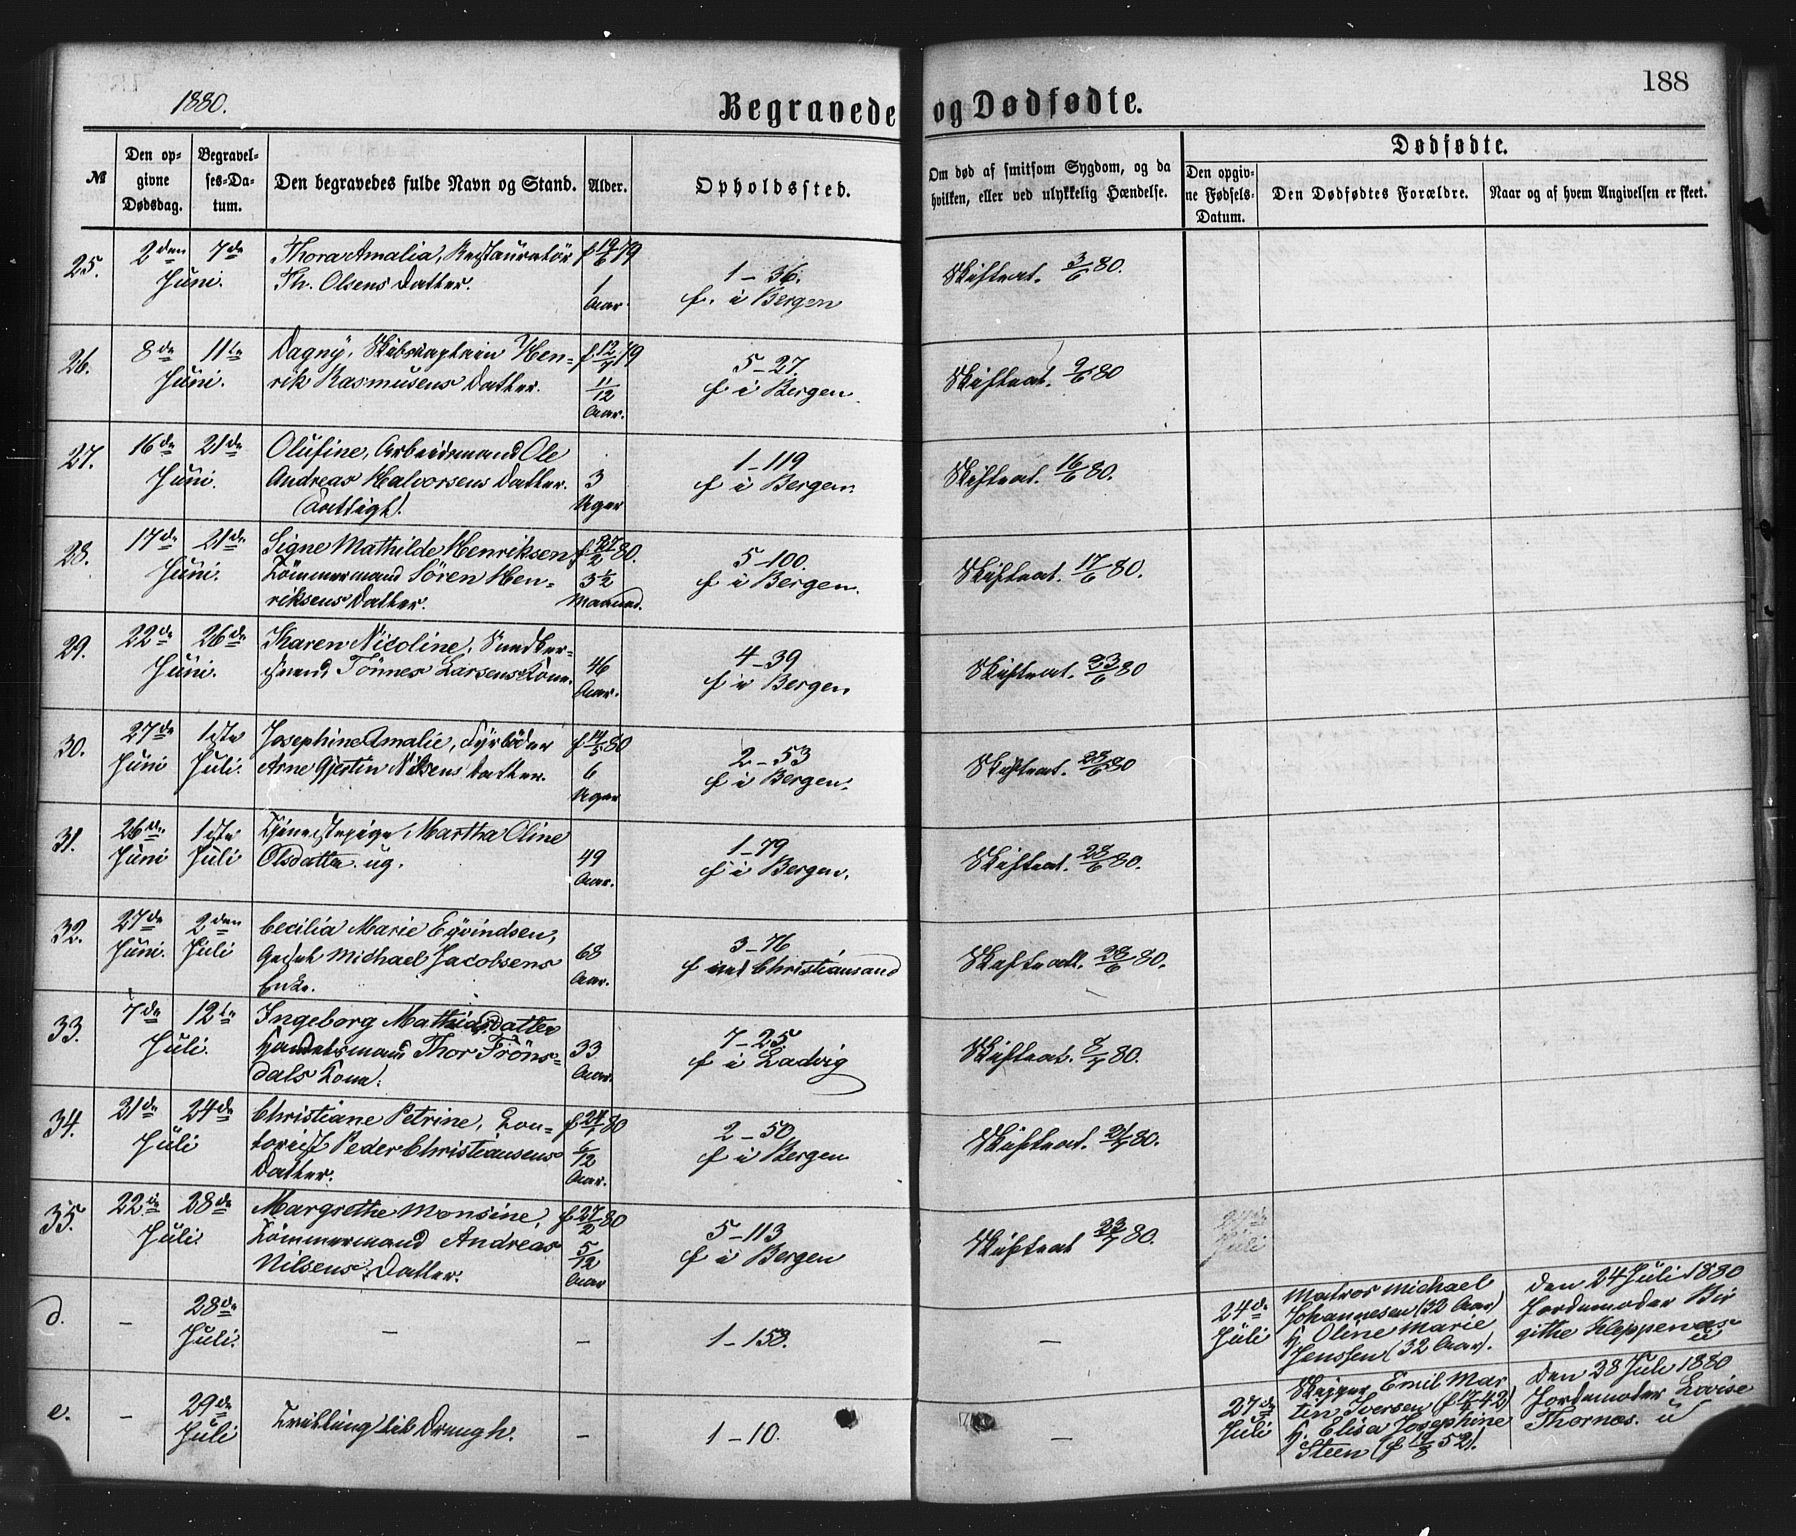 188
1880.
Begravede og Dødfødte.
№
Den op-
givne
Dødsdag.
Begravel-
ses-Da-
tum.
Den begravedes fulde Navn og Stand.
Alder.
Opholdssted.
Om død af smitsom Sygdom, og da
hvilken, eller ved ulykkelig Hændelse.
Dødfødte.
Den opgiv-
ne Fødsels-
Datum.
Den Dødfødtes Forældre.
Naar og af hvem Angivelsen er skeet.
25.
2den
Juni.
7de
Thora Amalia, Restauratør
Th. Olsens Datter.
f 19/6 79
1
Aar
1-36.
f. i Bergen
Skifteat. 3/6 80.
26.
8de
Juni.
11te
Dagny, Skibskaptein Hen-
rik Rasmusens Datter.
f 12/7 79
11/12
Aar.
5-27.
f i Bergen.
Skifteat. 9/6 80
27.
16de
Juni.
21de
Olufine, Arbeidsmand Ole
Andreas Halvorsens Datter.
3
Uger
1-119
f i Bergen.
Skifteat. 16/6 80.
28.
17de
Juni.
21de
Signe Mathilde Henriksen,
Tömmermand Sören Hen-
riksens Datter.
f 27/2 80.
3½
Maaned.
5-100.
f i Bergen.
Skifteat. 17/6 80.
29.
22de
Juni.
26de
Karen Nicoline,
Tönnes Larsens Kone.
46
Aar.
4-39
f i Bergen
Skifteat. 23/6 80
30.
27de
Juni
1ste
Juli.
Josephine Amalie, Fyrböder
Arne Gjertin Nilsens Datter.
f 14/5 80
6
Uger
2-53
f i Bergen.
Skifteat. 28/6 80
31.
26de
Juni
1ste
Juli
Tjenestepige Martha Oline
Olsdatter ug.
49
Aar.
1-79
f i Bergen.
Skifteat. 28/6 80.
32.
27de
Juni.
2den
Juli
Cecilia Marie Eyvindsen,
Michael Jacobsens
Enke.
68
Aar.
3-76
f ved Christiansand
Skifteatt. 28/6 80.
33.
7de
Juli.
12te
Ingeborg Mathiasdatter
Handelsmand Thor Fröns-
dals Kone.
33
Aar.
7-25
f i Ladvig
Skifteat. 8/7 80.
34.
21de
Juli
24de
Christiane Petrine, Kon-
torist Peder Christiansens
Datter.
f 24/1 80
6/12
Aar.
2-50
f i Bergen
Skifteat. 21/7 80.
35.
22de
Juli.
28de
Margrethe Monsine,
Tömmermand Andreas
Nilsens Datter.
f 27/2 80
5/12
Aar
5-113
f i Bergen
Skifteat 23/7 80.
27de
Juli
d.
–
28de
Juli.
–
–
1-153.
–
24de
Juli
Matros Michael
Johannesen (32 Aar)
H. Oline Marie
Jenssen (32 Aar).
den 24 Juli 1880
Jordemoder Bir
githe Kleppenæs
e.
–
29de
Juli
Tvilling til Dreng h.
–
1-10.
–
27de
Juli
Skipper Emil Mar
tin Iversen (f 17/6 42)
H. Elisa Josephine
Steen (f 19/8 52).
den 28 Juli 1880
Jordemoder Lovise
Thornæs.